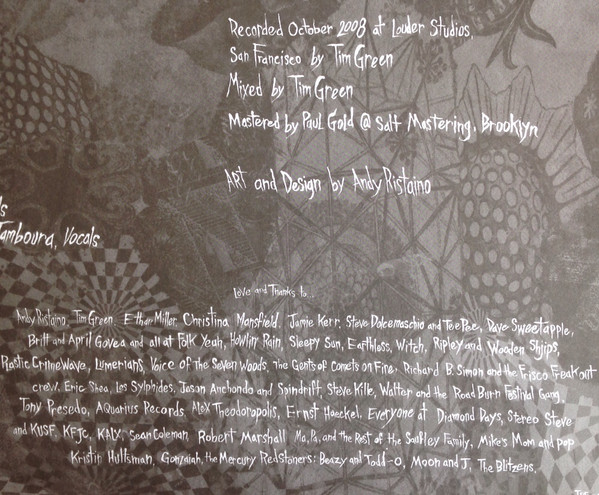 Recorded October 2008 at Louder Studios,
San Francisco by Tim Green
Mixed by Tim Green
Mastered by Paul Gold @ Salt Mastering, Brooklyn
ART and Design by Andy Ristaino
ls
Tamboura, Vocals
Love and Thanks to...
Andy Ristaino, Tim Green, Ethan Miller, Christina Mansfield, Jamie Kerr, Steve Dolcemaschio and Tee Pee, Dave Sweetapple,
Britt and April Govea and all at Folk Yeah, Howlin Rain, Sleepy Sun, Earthless, Witch, Ripley and Wooden Shjips,
Plastic Crimewave, Lumerians, Voice of the Seven Woods, the Gents of Comets on Fire, Richard B. Simon and the Frisco Freakout
crew, Eric Shea, Les Sylphides, Jason Anchondo and Spindrift, Steve Kille, Walter and the Road Burn Festival Gang,
Tony Presedo, Aquarius Records, Alex Theodoropolis, Ernst Haeckel, Everyone at Diamond Days, Stereo Steve
and KUSF, KFJC, KALX, Sean Coleman, Robert Marshall, Ma, Pa, and the Rest of the Saufley Family, Mike's Mom and Pop
Kristin Hultsman, Gonzaiah, the Mercury Redstoners: Beazy and Todd-o, Moon and J, The Blitzens,